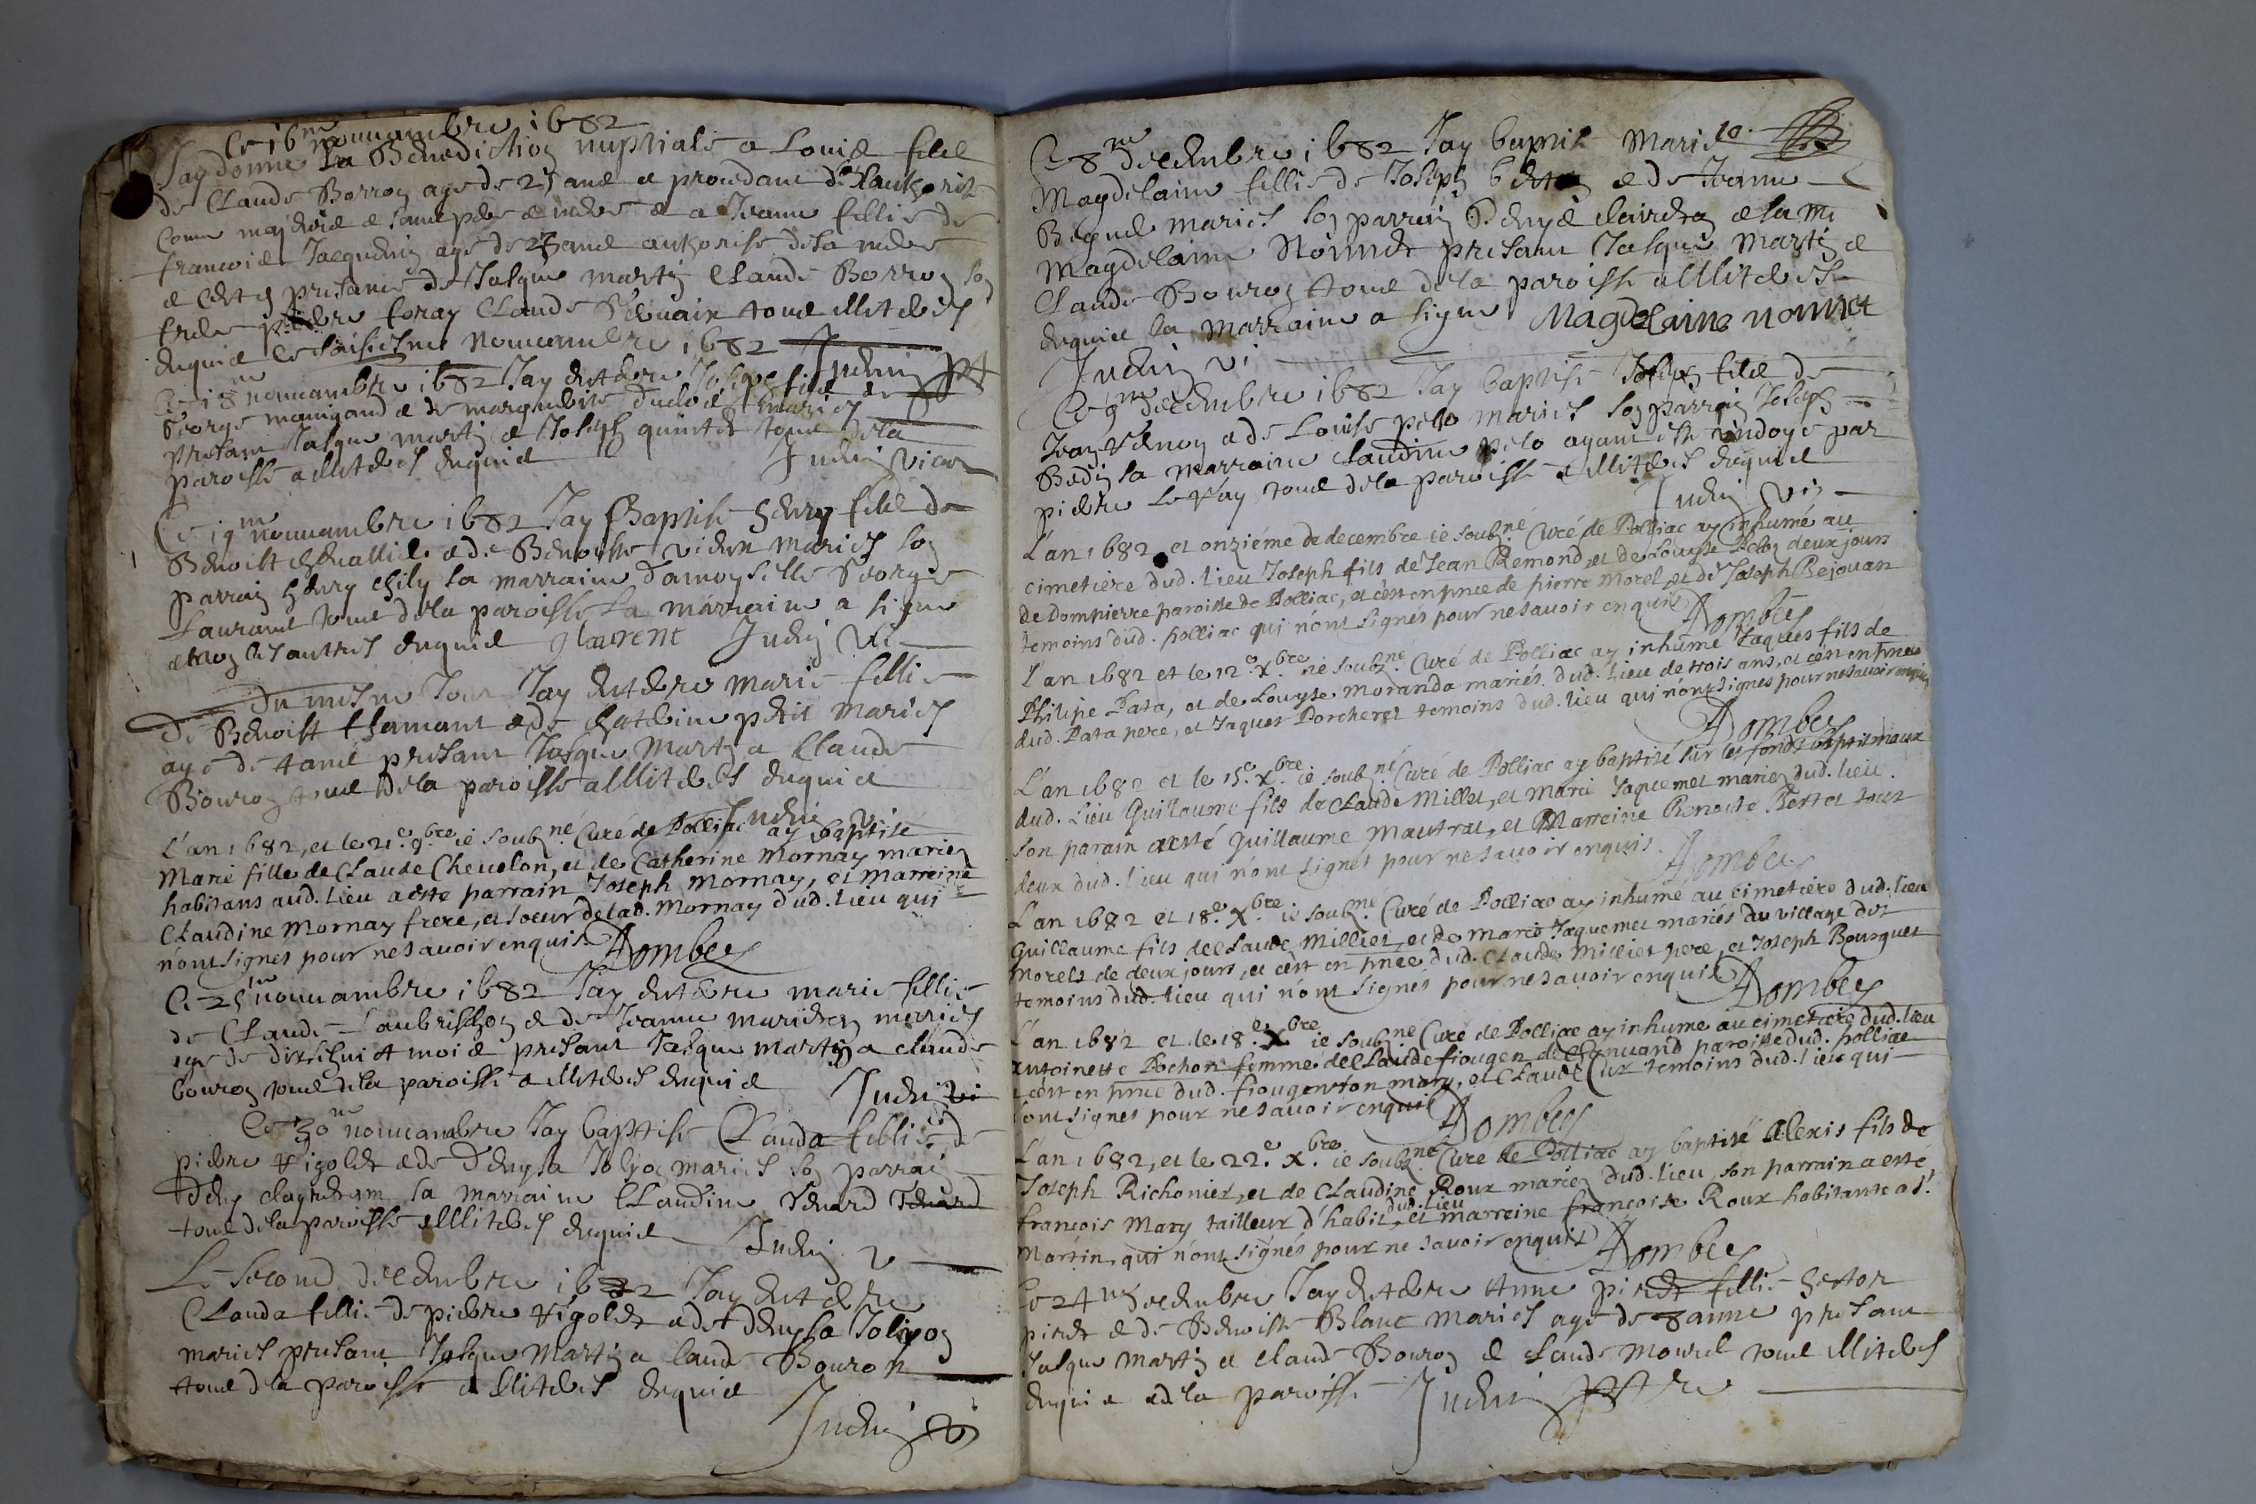 Ce 16me nouuambre 1682
Jay donne la Benediction nuptiale a Louis filz
de Claude Borron age de 25 ans et procedant de lauthorite
come majeur e sans pere e mere e a Jeanne fillie de
francois Jacquemin age de 25 ans authorise de sa mere
presance de Jasque martin Claude Borron son
frere pierre foray Claude tous illiteres
enquis le saisiesme nouuambre 1682 Juenin ptr
Ce 18me nouuambre 1682 Jay enterre filz de
George mourigand e de marguerite mariés
presant Jasque martin e Joseph quinset tous de la
paroisse e illiteres enquis Juenin vicar
Ce 19me nouuambre 1682 Jay Baptise henry filz de
Benoist cheuallier e de Benoiste mariés son
parrain henry chily la marraine damoyselle George
Laurand tous de la paroisse la marraine a signe
e non les auttres enquis glaurent Juenin vi
Du mesme Jour Jay enterre marie fillie
de Benoist thamant e de Catherine petit mariés
age de 4 ans presant Jasque Martin e Claude
Bouron tous de la paroisse e illiteres enquis
Juenin vi
L'an 1682, et le 21.e 9.bre ie soubz.né Curé de Polliac ay baptisé
Marie fille de Claude Cheuolon, et de Catherine Mornay mariez
habitans aud. lieu a esté parrain Joseph Mornay, et Marreine
Claudine Mornay frere, et soeur de lad. Mornay dud. lieu qui
n'ont signés pour ne sauoir enquis Dombey
Ce 25me nouuambre 1682 Jay enterre marie fillie
de Claude Laubrischon e de Jeanne mariés
age de dixsehuit mois presant Jasque martin e claude
bouron tous de la paroisse e illiteres enquis Juenin vi
Ce 30me nouuambre Jay baptise Clauda fillie de
pierre rigolet e de Denysa Jolyon mariés son parrain
Deny la marraine Claudine Tenard Tenard
tous de la paroisse e illiteres enquis Juenin v
Le second decembre 1682 Jay enterre
Clauda fillie de pierre rigolet e de denysa Jolyon
mariés presant Jasque Martin e laude Bouron
tous de la paroisse e illiteres enquis
Juenin vi
10.
Ce 8me decembre 1682 Jay baptise Marie
Magdelaine fillie de Joseph e de Jeanne
Beguet mariés son parrain Denys clairdon e la m
Magdelaine Nonnet presant Jasque Martin e
Claude Bouron tous de la paroisse e illiteres
enquis la Marraine a signe Magdelaine nonnet
Juenin vi
Ce 9me decembre 1682 Jay baptise Joseph filz de
Jean Remon e de Louise pelo mariés son parrain Joseph
Bedin sa marraine Claudine pelo ayant este undoye par
pierre Leray tous de la paroisse e illiteres enquis
Juenin vi
L'an 1682 et onziéme de decembre ie soubz.né Curé de Polliac ay inhumé au
cimetiere dud. lieu Joseph fils de Jean Remond, et de Louyse Pelon deux jours
de Dompierre paroisse de Polliac, et c'est en pnce de pierre Morel, et de Joseph Bejouan
temoins dud. polliac qui n'ont signés pour ne sauoir enquis Dombey
L'an 1682 et le 12.e x.bre ie soubz.né Curé de Polliac ay inhumé Jaques fils de
Philipe Pata, et de Louyse Moranda mariés dud. lieu de trois ans, et c'est en pnce
dud. Pata pere, et Jaques Porcheret temoins dud. lieu qui n'ont signés pour ne sauoir enquis
Dombey
L'an 1682 et le 15.e x.bre ie soubz.né Curé de Polliac ay baptisé sur les fonds baptismaux
dud. lieu Guillaume fils de Claude Millet, et Marie Jaquemet mariez dud. lieu.
son parain a esté Guillaume Mautrat, et Marreine Benoite Bertet tous
deux dud. lieu qui n'ont signés pour ne sauoir enquis. Dombey
L'an 1682 et 18.e x.bre ie soubz.né Curé de Polliac ay inhumé au cimetiere dud. lieu
Guillaume fils de Claude Milliet, et de Marie Jaquemet mariés du village des
Morels de deux jours, et c'est en pnce dud. Claude Milliet pere, et Joseph Bourguet
temoins dud. lieu qui n'ont signés pour ne sauoir enquis Dombey
L'an 1682 et le 18.e x.bre ie soubz.né Curé de Polliac ay inhumé au cimetiere dud. lieu
Antoinette Pochon femme de Claude fiougen de Chanuand paroisse dud. polliac
c'est en pnce dud. fiougen son mary, et Claude Cur temoins dud. lieu qui
n'ont signés pour ne sauoir enquis Dombey
L'an 1682, et le 22.e x.bre ie soubz.né Curé de Polliac ay baptisé Alexis fils de
Joseph Richonier, et de Claudine Roux mariez dud. lieu, son parrain a esté
dud. lieu
françois Mary tailleur d'habit, et marreine françoise Roux habitante a S.t
Martin, qui n'ont signés pour ne sauoir enquis Dombey
Ce 24me decembre Jay enterre Anne piret fillie hector
piret e de Benoiste Blanc mariés age de 8 anne presant
Jasque martin et claude Bouron e Claude Mourel tous illiteres
enquis e de la paroisse Juenin pstre